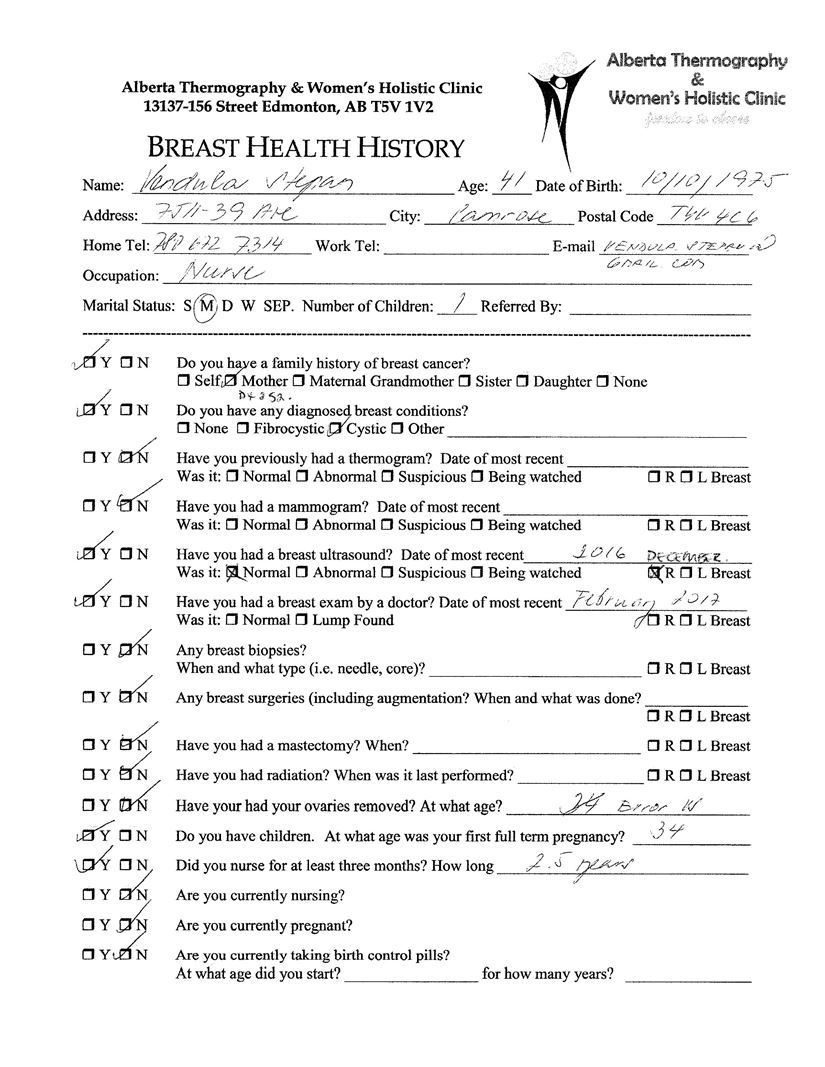 Alberta Thermography
&
Women's Holistic Clinic
Alberta Thermography & Women's Holistic Clinic
13137-156 Street Edmonton, AB T5V 1V2
BREAST HEALTH HISTORY
Name: Vendula Stepan Age: 41 Date of Birth: 10/10/1975
Address: 7511-39 Ave City: Camrose Postal Code T4V 4C6
Home Tel: 780 672 7314 Work Tel: E-mail VENDULA. STEPAN @
GMAIL. COM
Occupation: Nurse
Marital Status: S M D W SEP. Number of Children: 1 Referred By:
Y N Do you have a family history of breast cancer?
Self Mother Maternal Grandmother Sister Daughter None
DX @ 52.
Y N Do you have any diagnosed breast conditions?
None Fibrocystic Cystic Other
Y N Have you previously had a thermogram? Date of most recent
Was it: Normal Abnormal Suspicious Being watched R L Breast
Y N Have you had a mammogram? Date of most recent
Was it: Normal Abnormal Suspicious Being watched R L Breast
Y N Have you had a breast ultrasound? Date of most recent 2016 DECEMBER.
Was it: Normal Abnormal Suspicious Being watched R L Breast
Y N Have you had a breast exam by a doctor? Date of most recent February 2017
Was it: Normal Lump Found R L Breast
Y N Any breast biopsies?
When and what type (i.e. needle, core)? R L Breast
Y N Any breast surgeries (including augmentation? When and what was done?
R L Breast
Y N Have you had a mastectomy? When? R L Breast
Y N Have you had radiation? When was it last performed? R L Breast
Y N Have your had your ovaries removed? At what age? 34 Error
Y N Do you have children. At what age was your first full term pregnancy? 34
Y N Did you nurse for at least three months? How long 2.5 years
Y N Are you currently nursing?
Y N Are you currently pregnant?
Y N Are you currently taking birth control pills?
At what age did you start? for how many years?